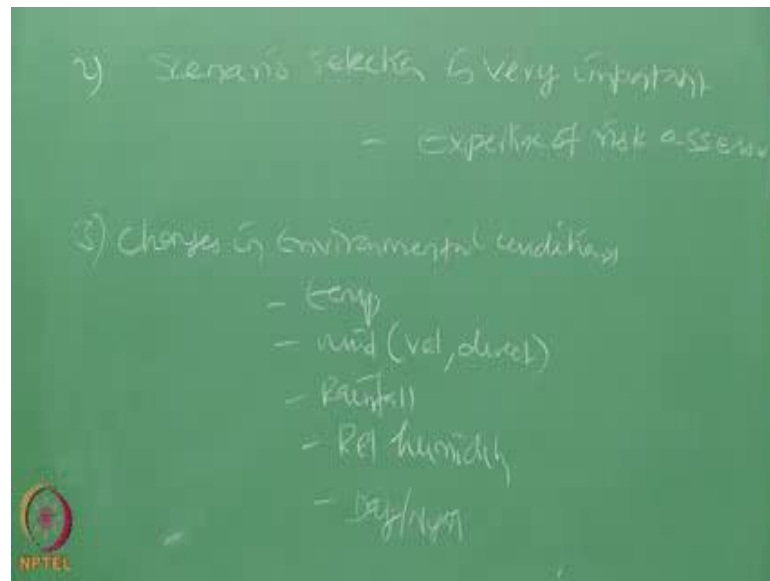 2) Scenario selection is very important
- expertise of risk assessor
3) Changes in Environmental conditions
- temp
- wind (vel, direct)
- Rainfall
- Rel humidity
- Day/Night
NPTEL